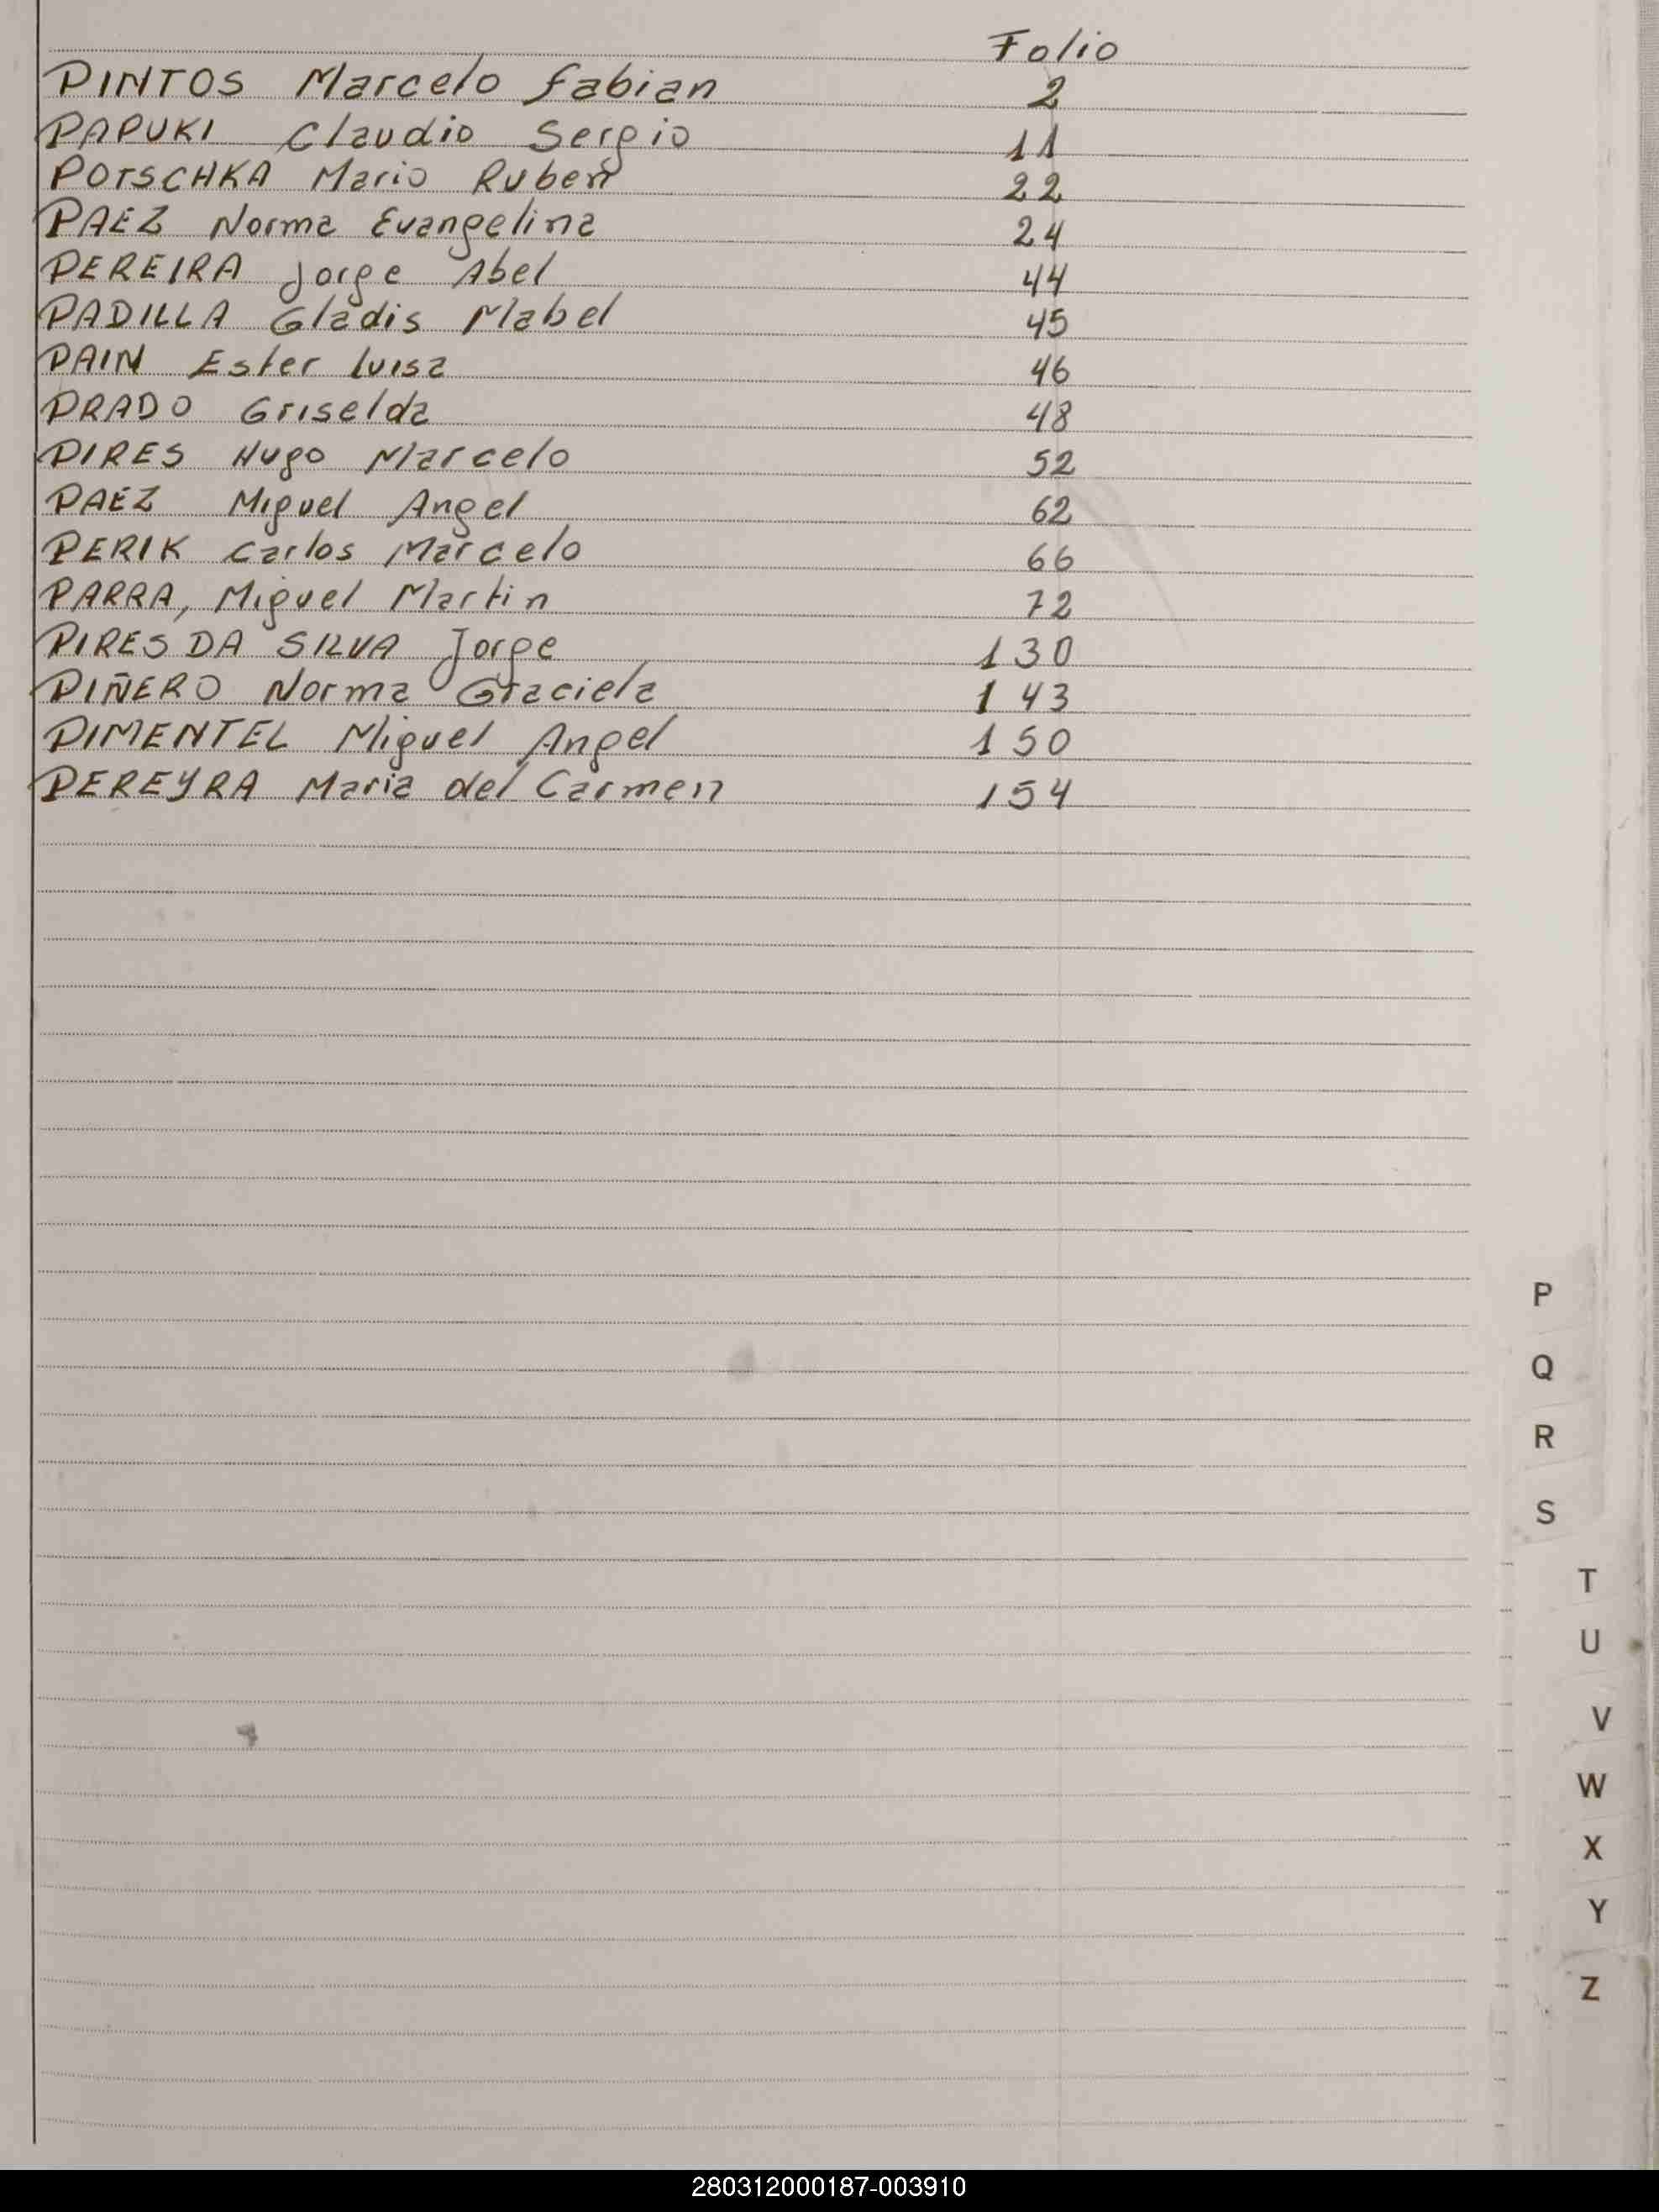 Folio
PINTOS Marcelo fabian 2
PAPUKI Claudio Sergio 11
POTSCHKA Mario Ruben 22
PAEZ Norma Evangelina 24
PEREIRA Jorge Abel 44
PADILLA Gladis Mabel 45
PAIN Ester luisa 46
PRADO Griselda 48
PIRES Hugo Marcelo 52
PAEZ Miguel Angel 62
PERIK Carlos Marcelo 66
PARRA, Miguel Martin 72
PIRES DA SILVA Jorge 130
PIÑERO Norma Graciela 143
PIMENTEL Miguel Angel 150
PEREYRA Maria del Carmen 154
P
Q
R
S
T
U
V
W
X
Y
Z
280312000187-003910